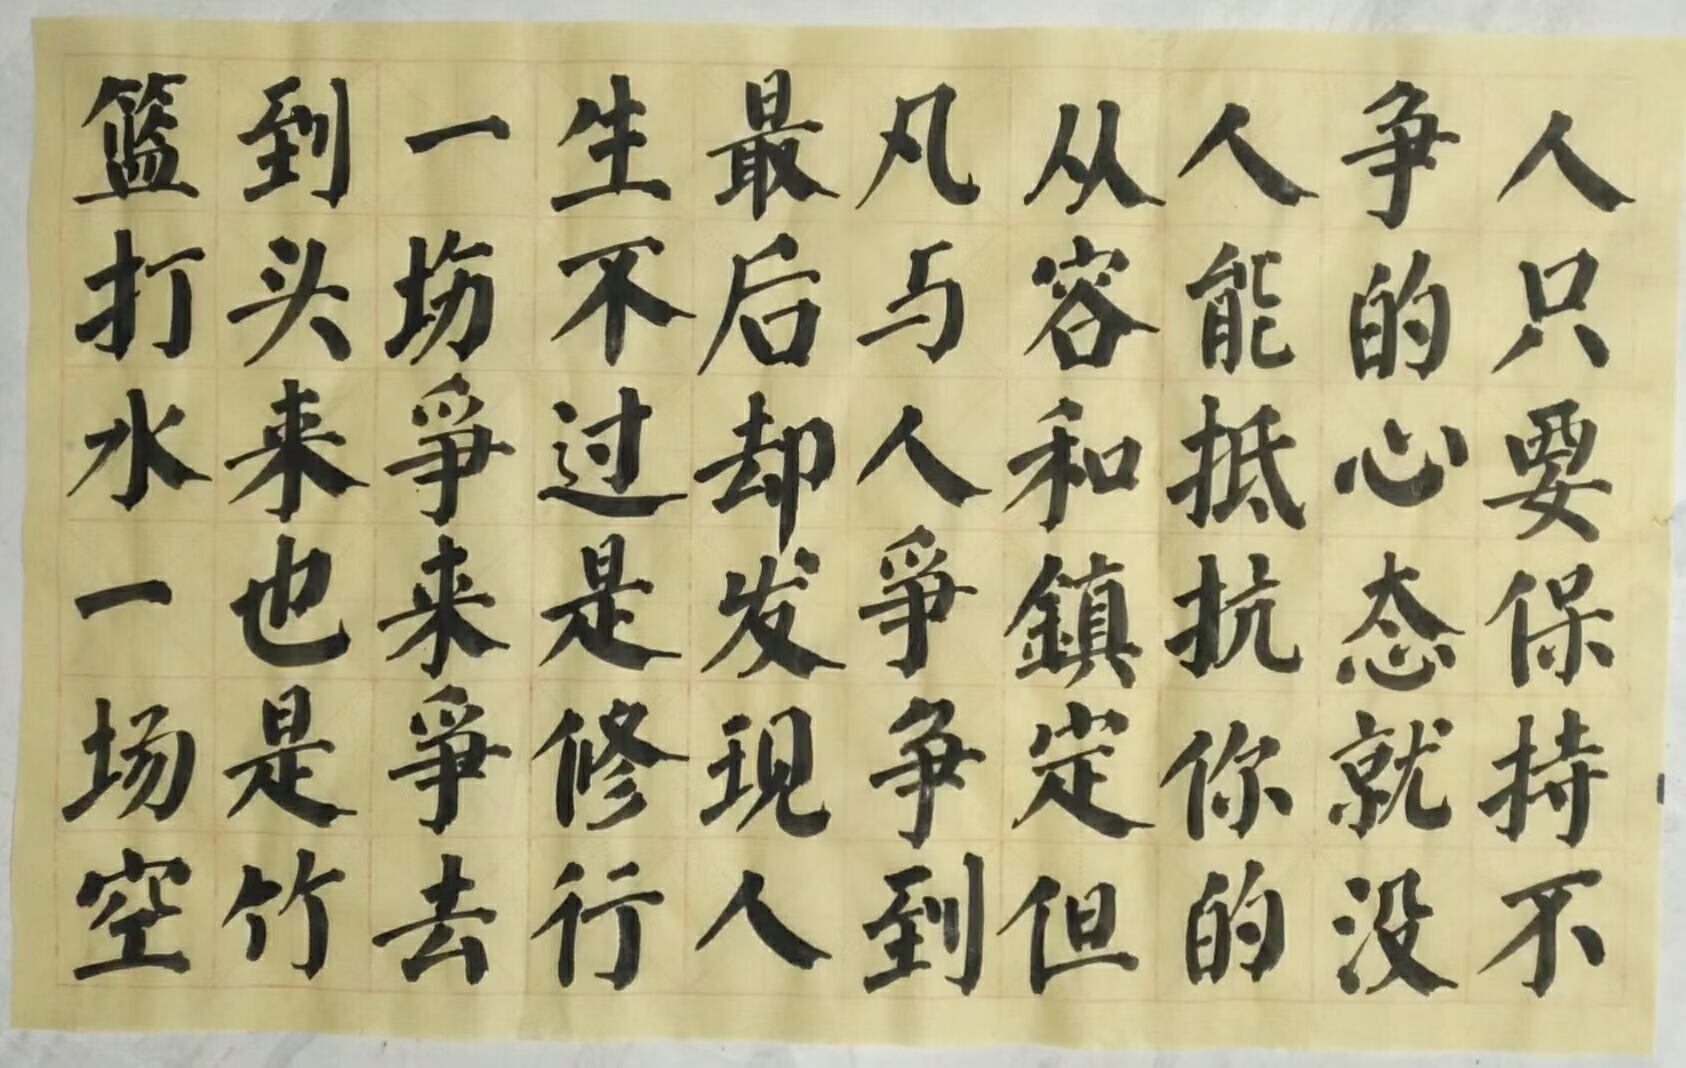 人只要保持不
争的心态就没
人能抵抗你的
从容和鎮定但
凡与人爭争到
最后却发现人
生不过是修行
一场爭来爭去
到头来也是竹
篮打水一场空